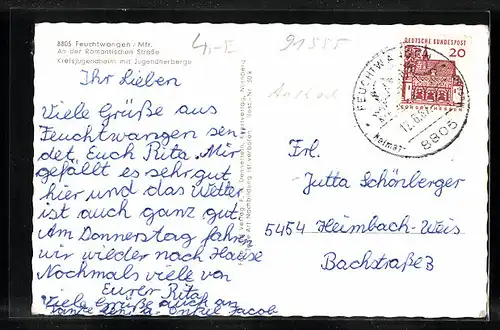 8805 Feuchtwangen / Mfr.
An der Romantischen Straße
Kreisjugendheim mit Jugendherberge
4,-E
91555
Ihr Lieben
Viele Grüße aus
Feuchtwangen sen-
det Euch Rita. Mir
gefällt es sehr gut
hier und das Wetter
ist auch ganz gut.
Am Donnerstag fahren
wir wieder nach Hause
Nochmals viele von
Eurer Rita
Viele Grüße auch an
Tante und a. Onkel Jacob
DEUTSCHE BUNDESPOST
20
FEUCHTWANGEN
8805
Heimat-
Frl.
Jutta Schönberger
5454 Heimbach-Weis
Bachstraße 3